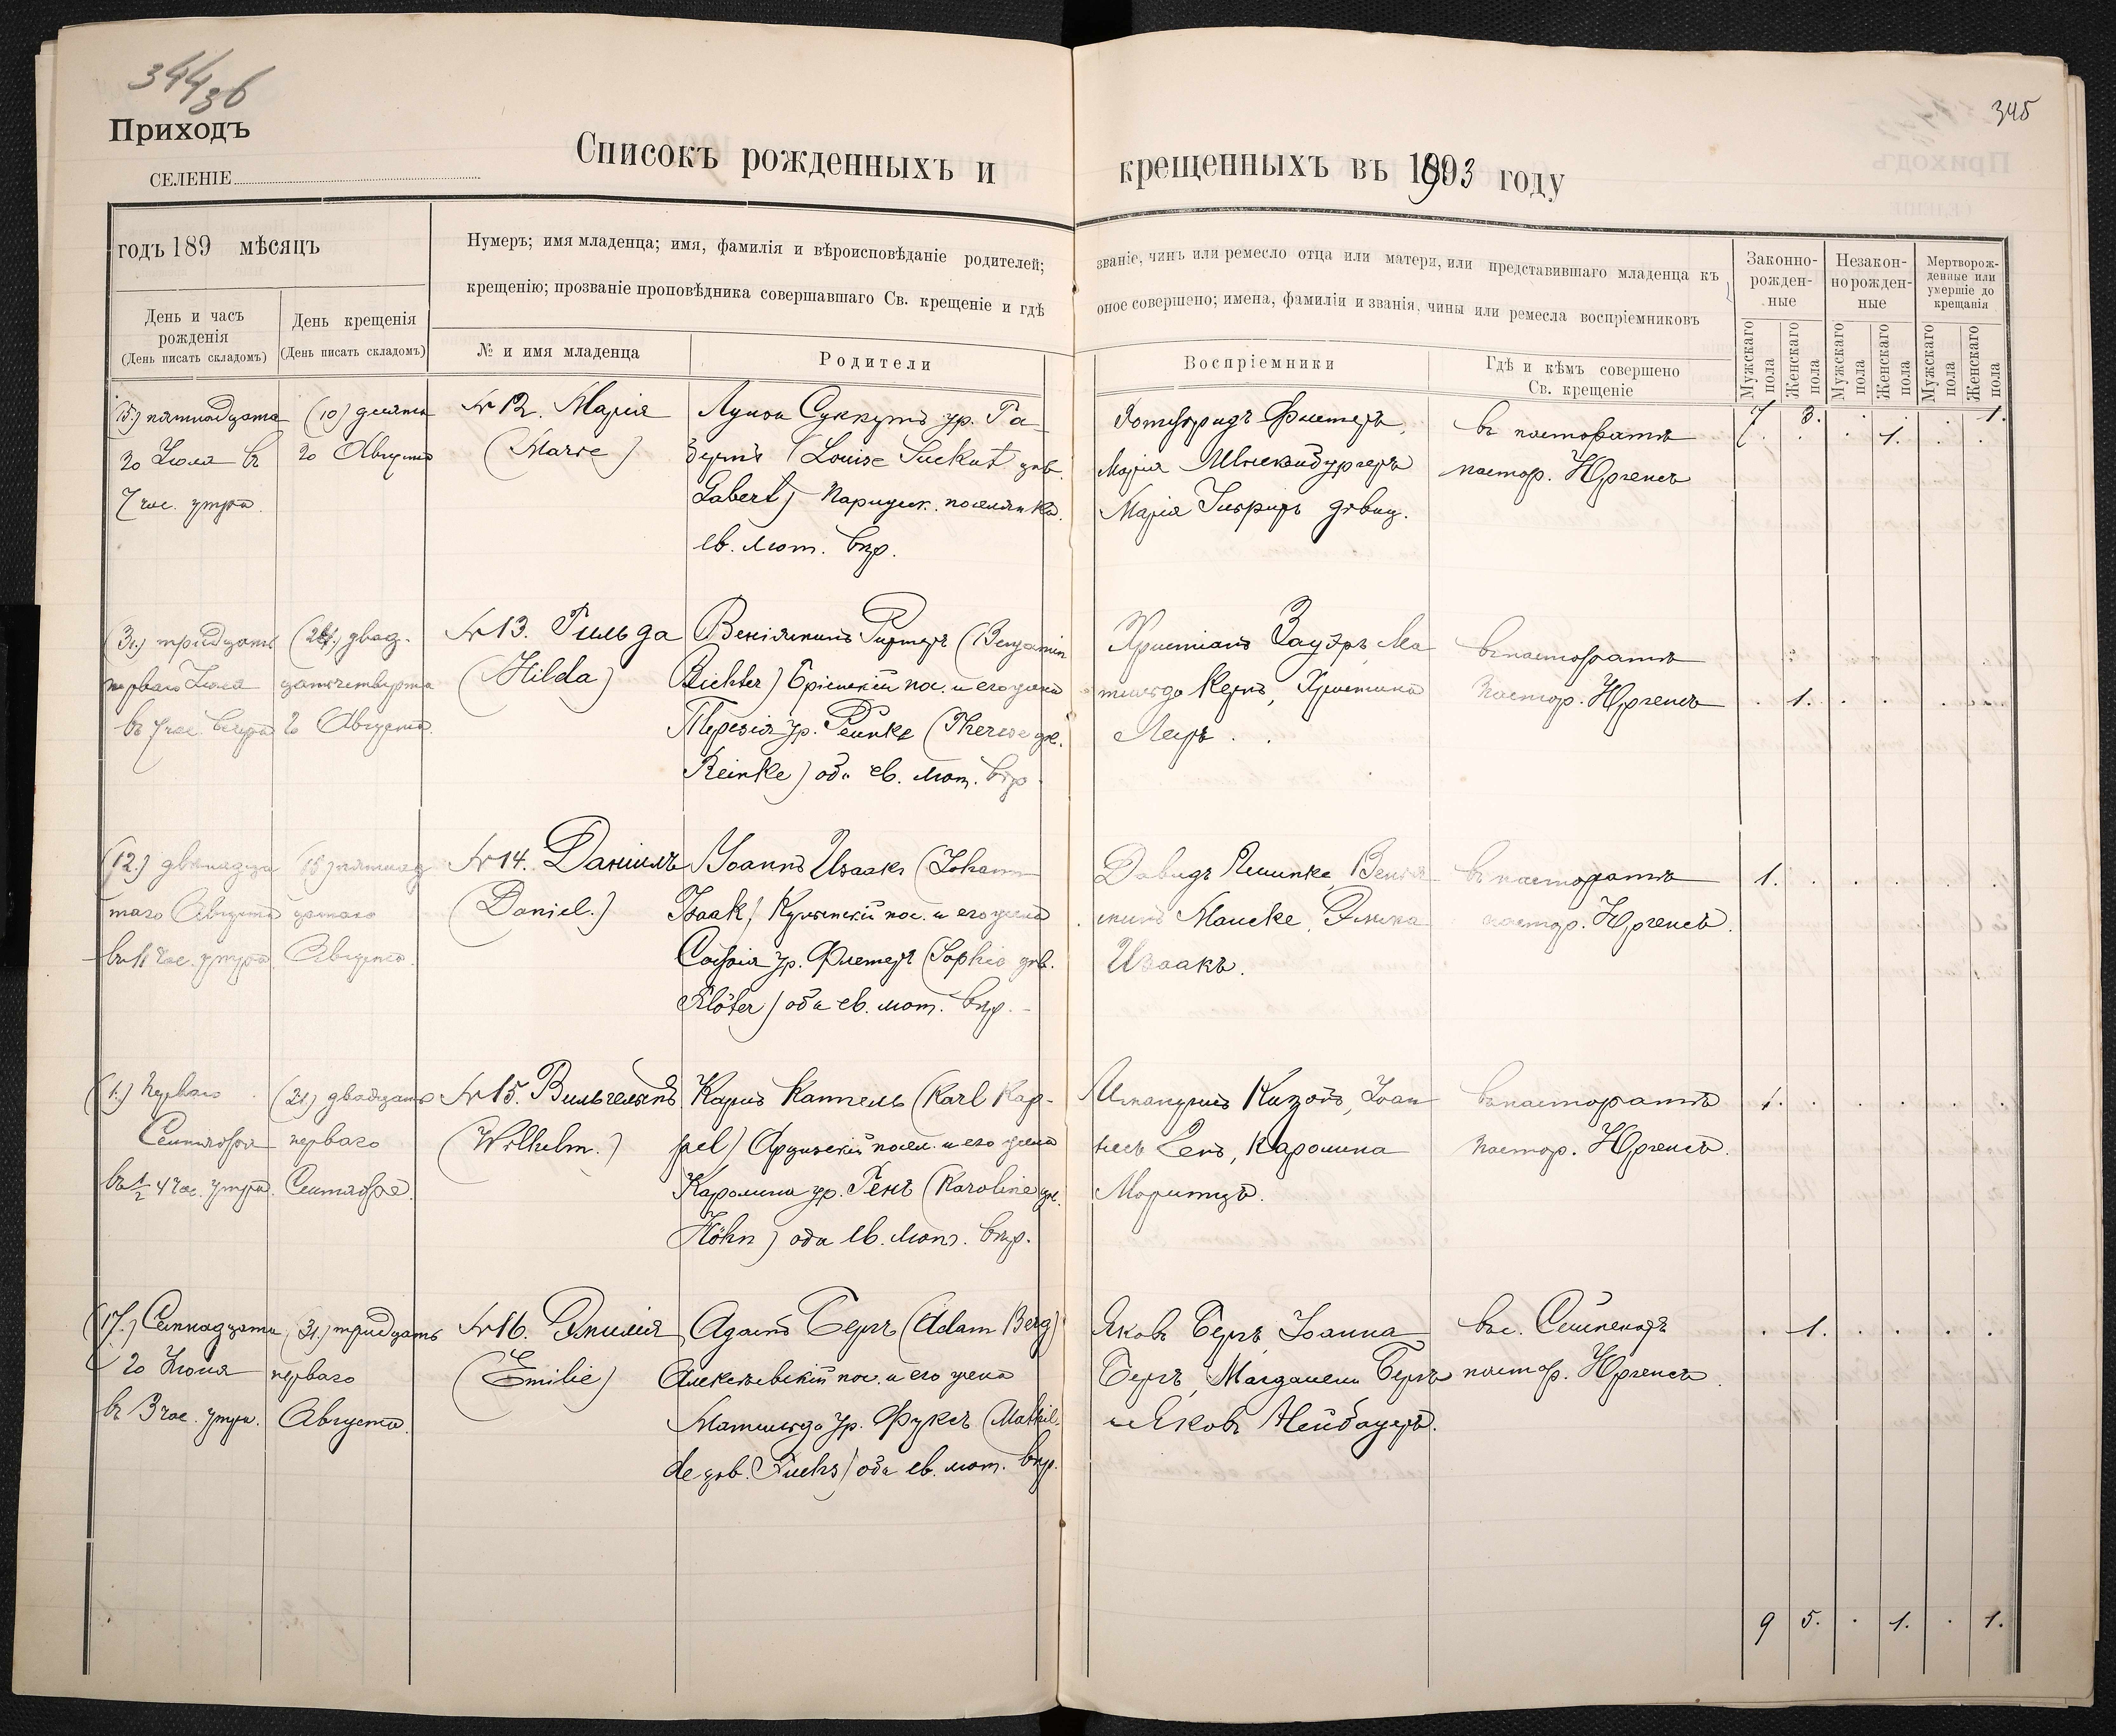 344 зб
345
Приходъ
СЕЛЕНІЕ
Списокъ рожденныхъ и крещенныхъ въ 1903 году
годъ 189 мѣсяцъ
День и часъ рожденія
(День писать складомъ)
День крещенія
(День писать складомъ)
Нумеръ; имя младенца; имя, фамилія и вѣроисповѣданіе родителей; званіе, чинъ или ремесло отца или матери, или представившаго младенца къ
крещенію; прозваніе проповѣдника совершавшаго Св. крещеніе и гдѣ оное совершено; имена, фамиліи и званія, чины или ремесла воспріемниковъ
№ и имя младенца
Родители
Воспріемники
Гдѣ и кѣмъ совершено
Св. крещеніе
Законно-
рожден-
ные
Незакон-
норожден-
ные
Мертворож-
денные или
умершіе до
крещанія
Мужскаго пола
Женскаго пола
Мужскаго пола
Женскаго пола
Мужскаго пола
Женскаго пола
7 3. . . . 1.
(15) пятнадцата
го Іюля въ
7 час. утра.
(10) десята
го Августа
№ 12. Марія
(Marie)
Луиза Суккутъ ур. Га
бертъ (Louise Suckut geb.
Gabert) Парижск. поселянка
ев. лют. вѣр.
Готфридъ Флетеръ,
Марія
Марія дѣвиц.
въ пасторатѣ
пастор. Юргенсъ
. . . 1. . .
(31.) тридцать
перваго Іюля
въ 7 час. вечера
(24.) двад-
цать четверта
го Августа
№ 13. Гильда
(Hilda)
Веніяминъ Рихтеръ (Benjamin
Richter) Бріенскій пос. и его жена
Терезія ур. Рейнке (Therese ge.
Reinke) оба ев. лют. вѣр.
Христіанъ Зауэръ, Ма
тильда Кернъ, Христина
Леръ.
въ пасторатѣ
пастор. Юргенсъ
. 1. . . . .
(12.) двенадца
таго Августа
въ 11 час. утра
(15) пятнад
цатаго
Августа.
№ 14. Даніилъ
(Daniel.)
Іоаннъ Изаакъ (Johann
Isaak) Кульмскій пос. и его жена
Софія ур. Флетеръ (Sophie geb.
Flöter) оба ев. лют. вѣр.
Давидъ Рейнке, Веніа
минъ Манске, Эмма
Изаакъ.
въ пасторатѣ
пастор. Юргенсъ.
1. . . . . .
(1.) Перваго
Сентября
въ 1/2 4 час. утра.
(21) двадцать
перваго
Сентября.
№ 15. Вильгельмъ
(Wilhelm.)
Карлъ Каппель (Karl Kap-
pel) Арцизскій посел. и его жена
Каролина ур. Генъ (Karoline ge.
Höhn) оба ев. лют. вѣр.
Иммануилъ Іоан
несъ Генъ, Каролина
Моритцъ.
въ пасторатѣ
пастор. Юргенсъ.
1. . . . . .
(17.) Семнадцата
го Июня
въ 3 час. утра.
(31.) тридцать
перваго
Августа.
№ 16. Эмилія
(Emilie)
Адамъ Бергъ (Adam Berg)
Алексѣевскій пос. и его жена
Матильда ур. Фуксъ (Mathil-
de geb. Fuchs) оба ев. лют. вѣр.
Яковъ Бергъ, Іоанна
Бергъ, Магдалена Бергъ
и Яковъ Нейбауеръ.
въ с.
пастор. Юргенсъ.
. 1. . . . .
9 5. . 1. . 1.